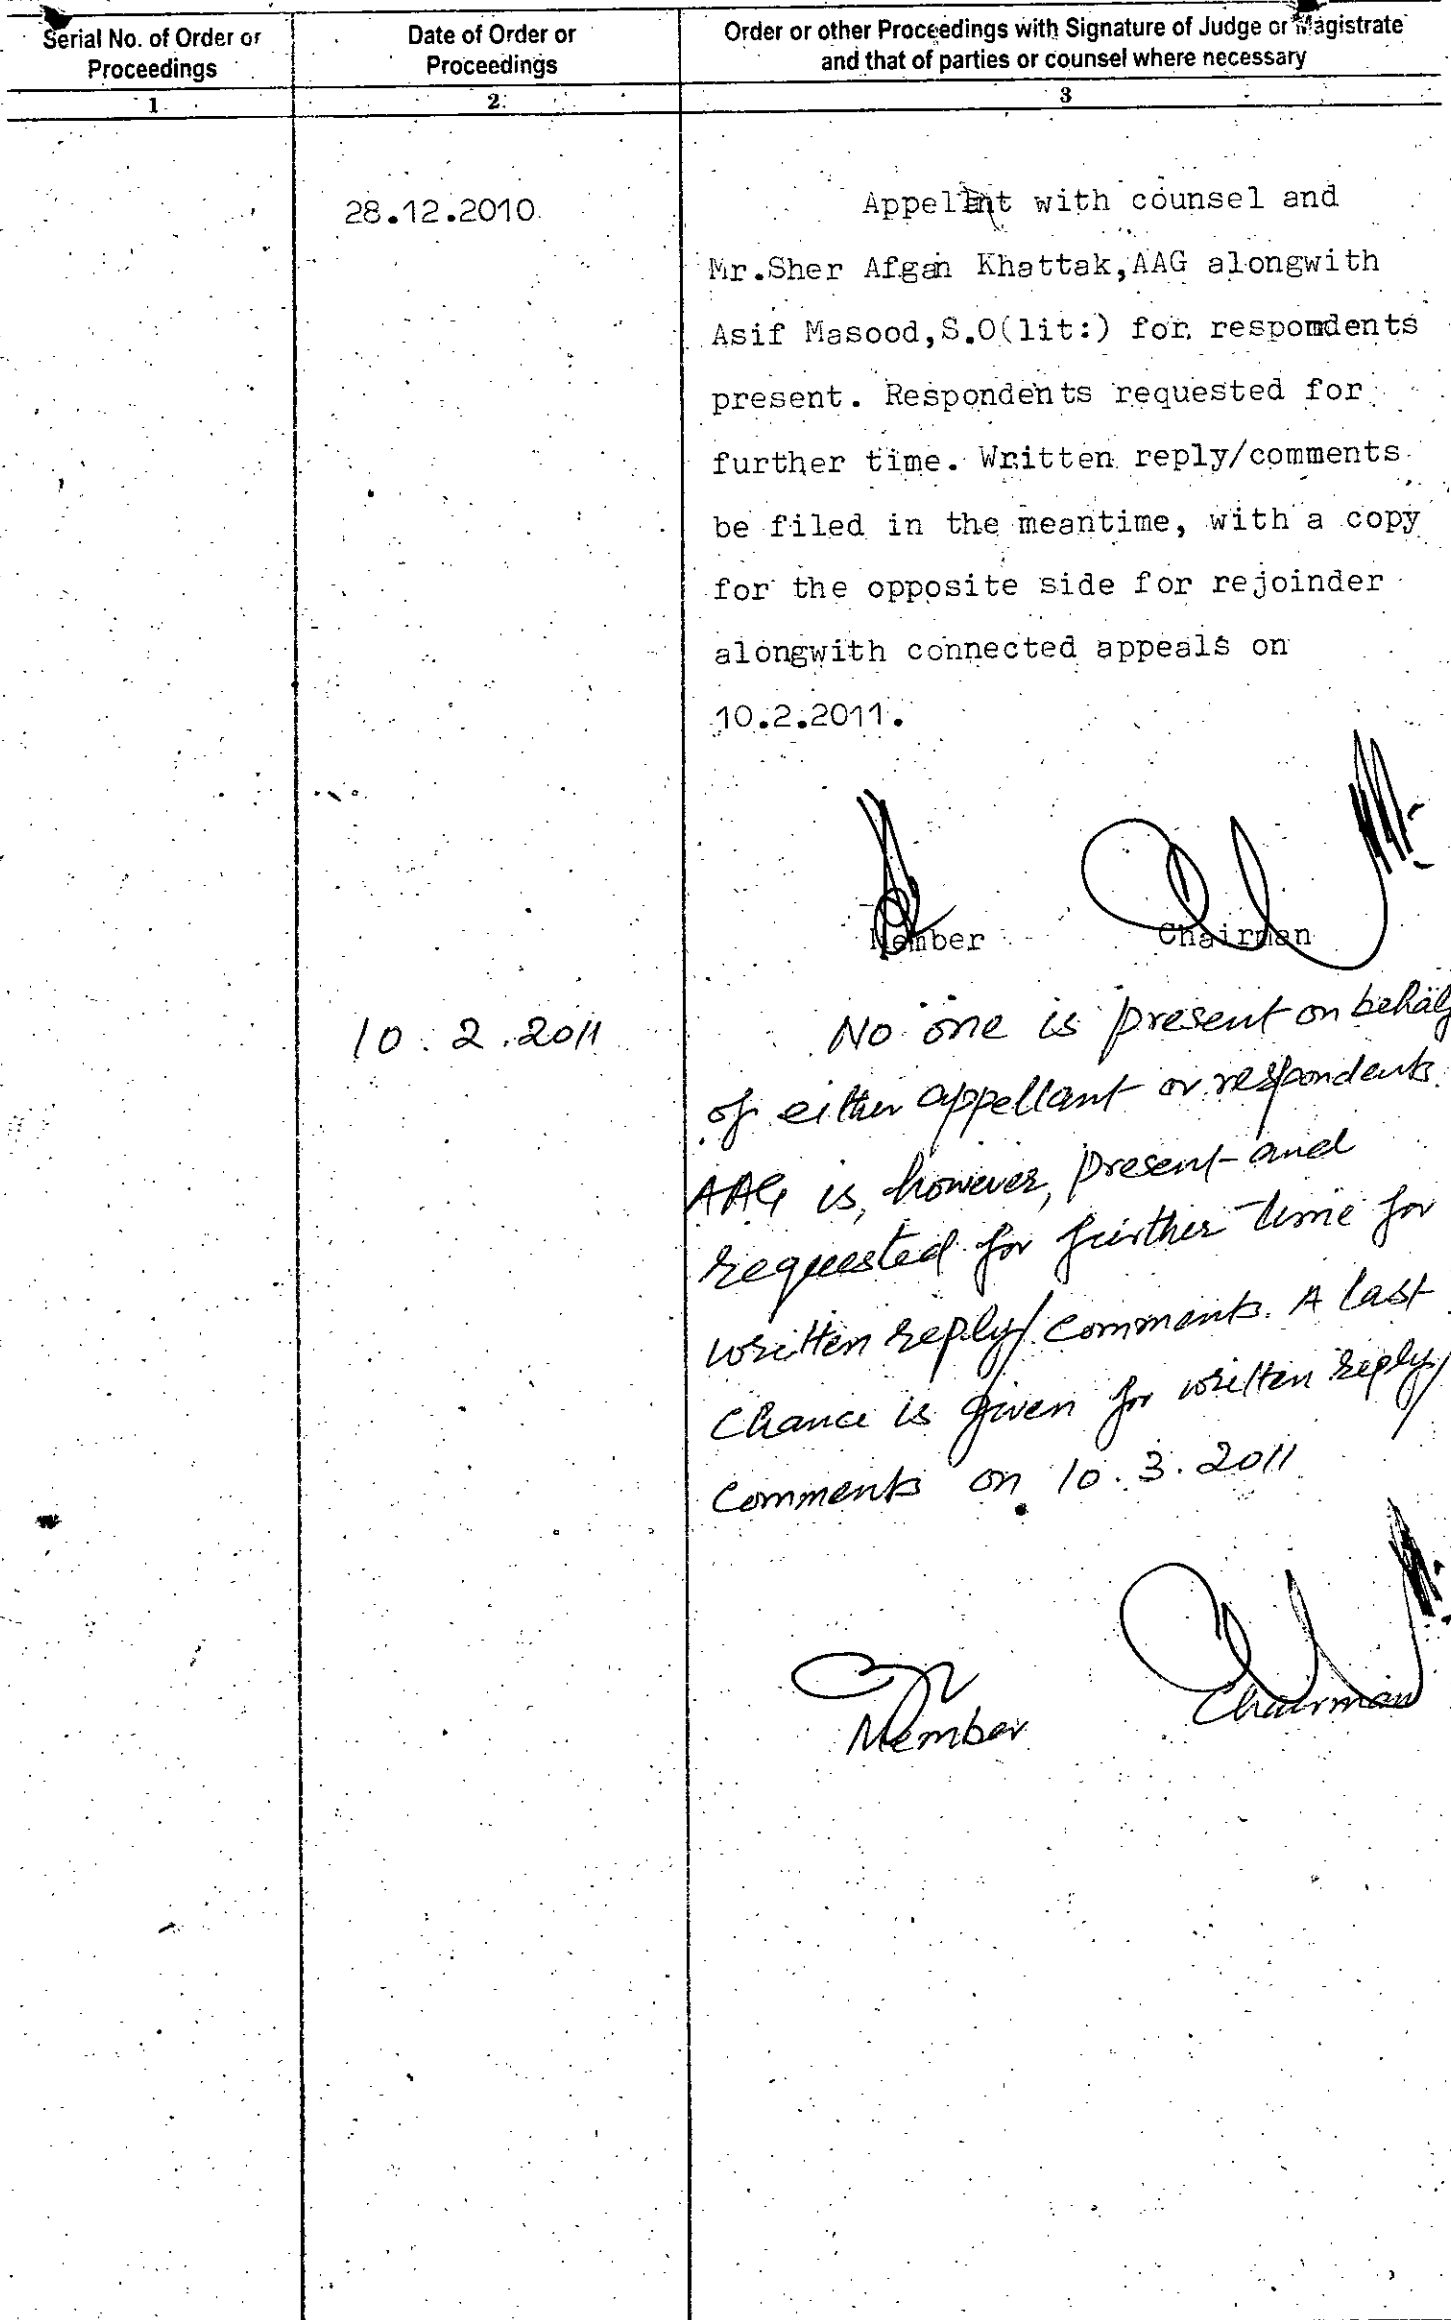 Serial No. of Order or
Proceedings
Date of Order or
Proceedings
Order or other Proceedings with Signature of Judge or Magistrate
and that of parties or counsel where necessary
1
2
3
28.12.2010
Appellant with counsel and
Mr.Sher Afgan Khattak,AAG alongwith
Asif Masood,S.O(lit:) for respondents
present. Respondents requested for
further time. Written reply/comments
be filed in the meantime, with a copy
for the opposite side for rejoinder
alongwith connected appeals on
10.2.2011.
Member
Chairman
10.2.2011
No one is present on behalf
of either appellant or respondents.
AAG is, however, present and
requested for further time for
written reply/comments. A last
Chance is given for written reply/
Comments on 10.3.2011
Member
Chairman